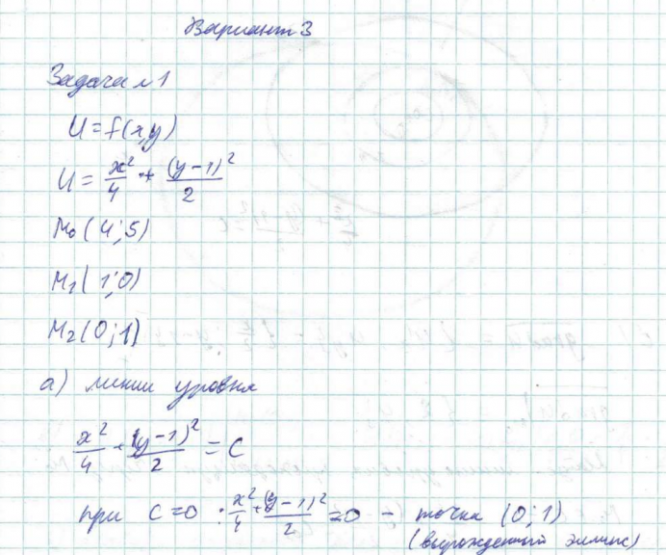 Вариант 3
Задача №1
U = f(x,y)
U = x²/4 + (y-1)²/2
M₀(4;5)
M₁(1;0)
M₂(0;1)
а) линии уровня
x²/4 + (y-1)²/2 = C
при C=0 : x²/4 + (y-1)²/2 = 0 - точка (0;1)
(вырожденный эллипс)